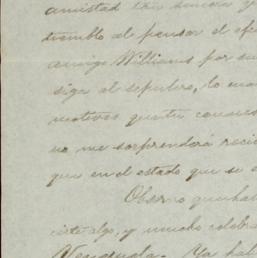 amistad tan sincera y
tiemblo al pensar el efe
amigo Williams por su
siga al sepulcro, lo cua
motivos que tu conoces
no me sorprenderá reci
que en el estado que se e
Observo que has
este algo, y mucho celebra
Venezuela. Ya hab